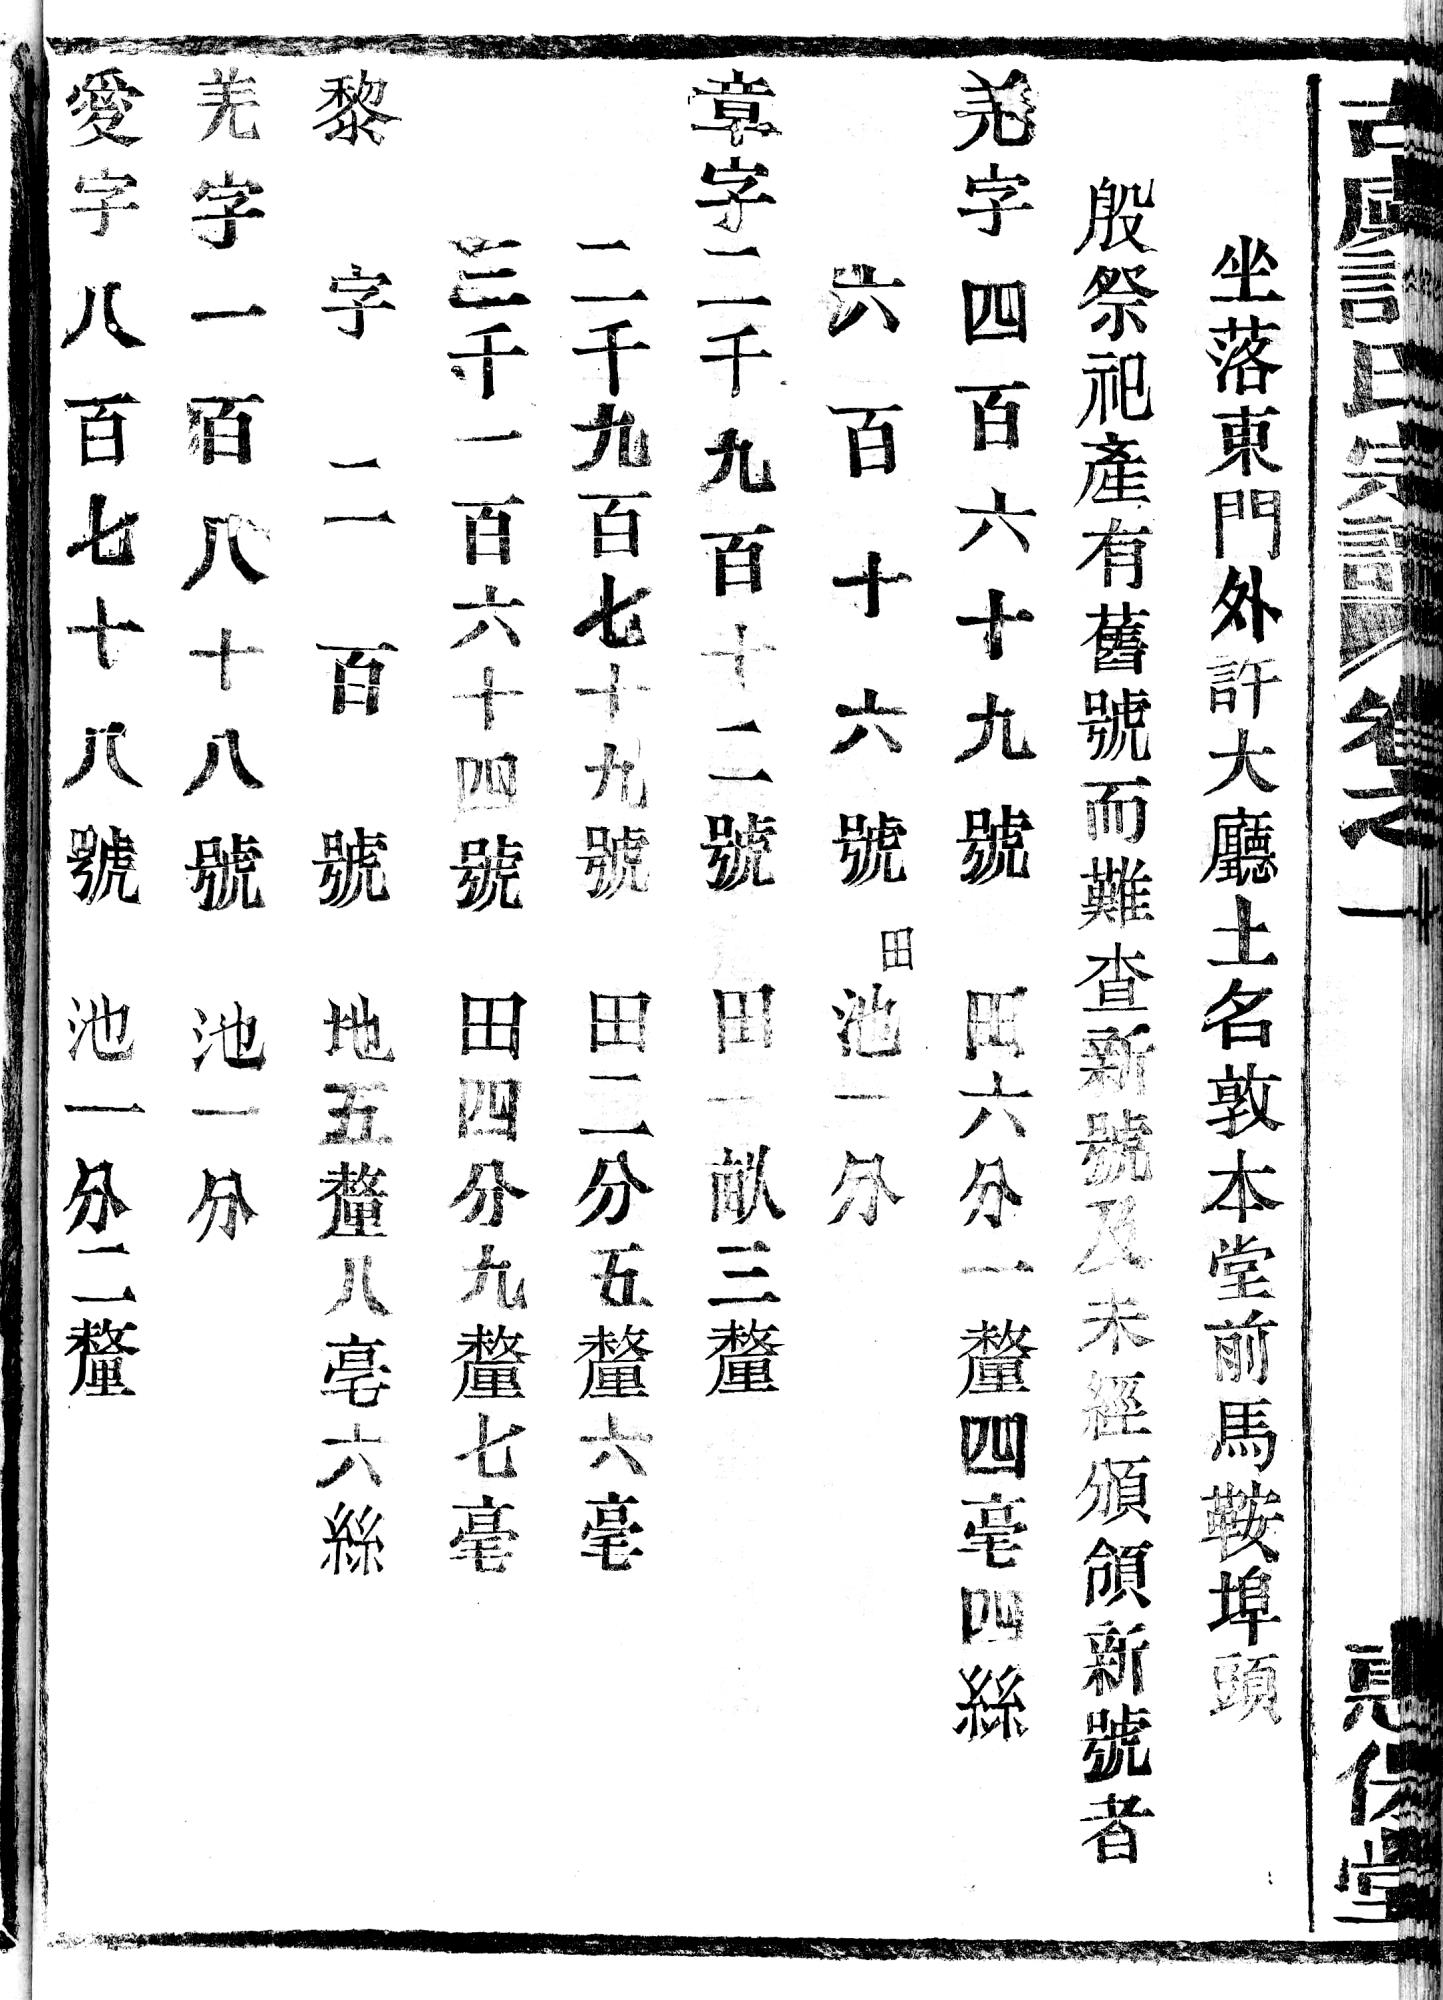 古虞許氏宗譜 卷之一
惠保堂
坐落東門外許大廳土名敦本堂前馬鞍埠頭
殷祭祀產有舊號而難查新號及未經頒領新號者
羌字四百六十九號 田六分一釐四毫四絲
六百十六號 田池一分
章字二千九百十二號 田一畝三釐
二千九百七十九號 田二分五釐六毫
三千一百六十四號 田四分九釐七毫
黎字二百號 地五釐八毫六絲
羌字一百八十八號 池一分
愛字八百七十八號 池一分二釐